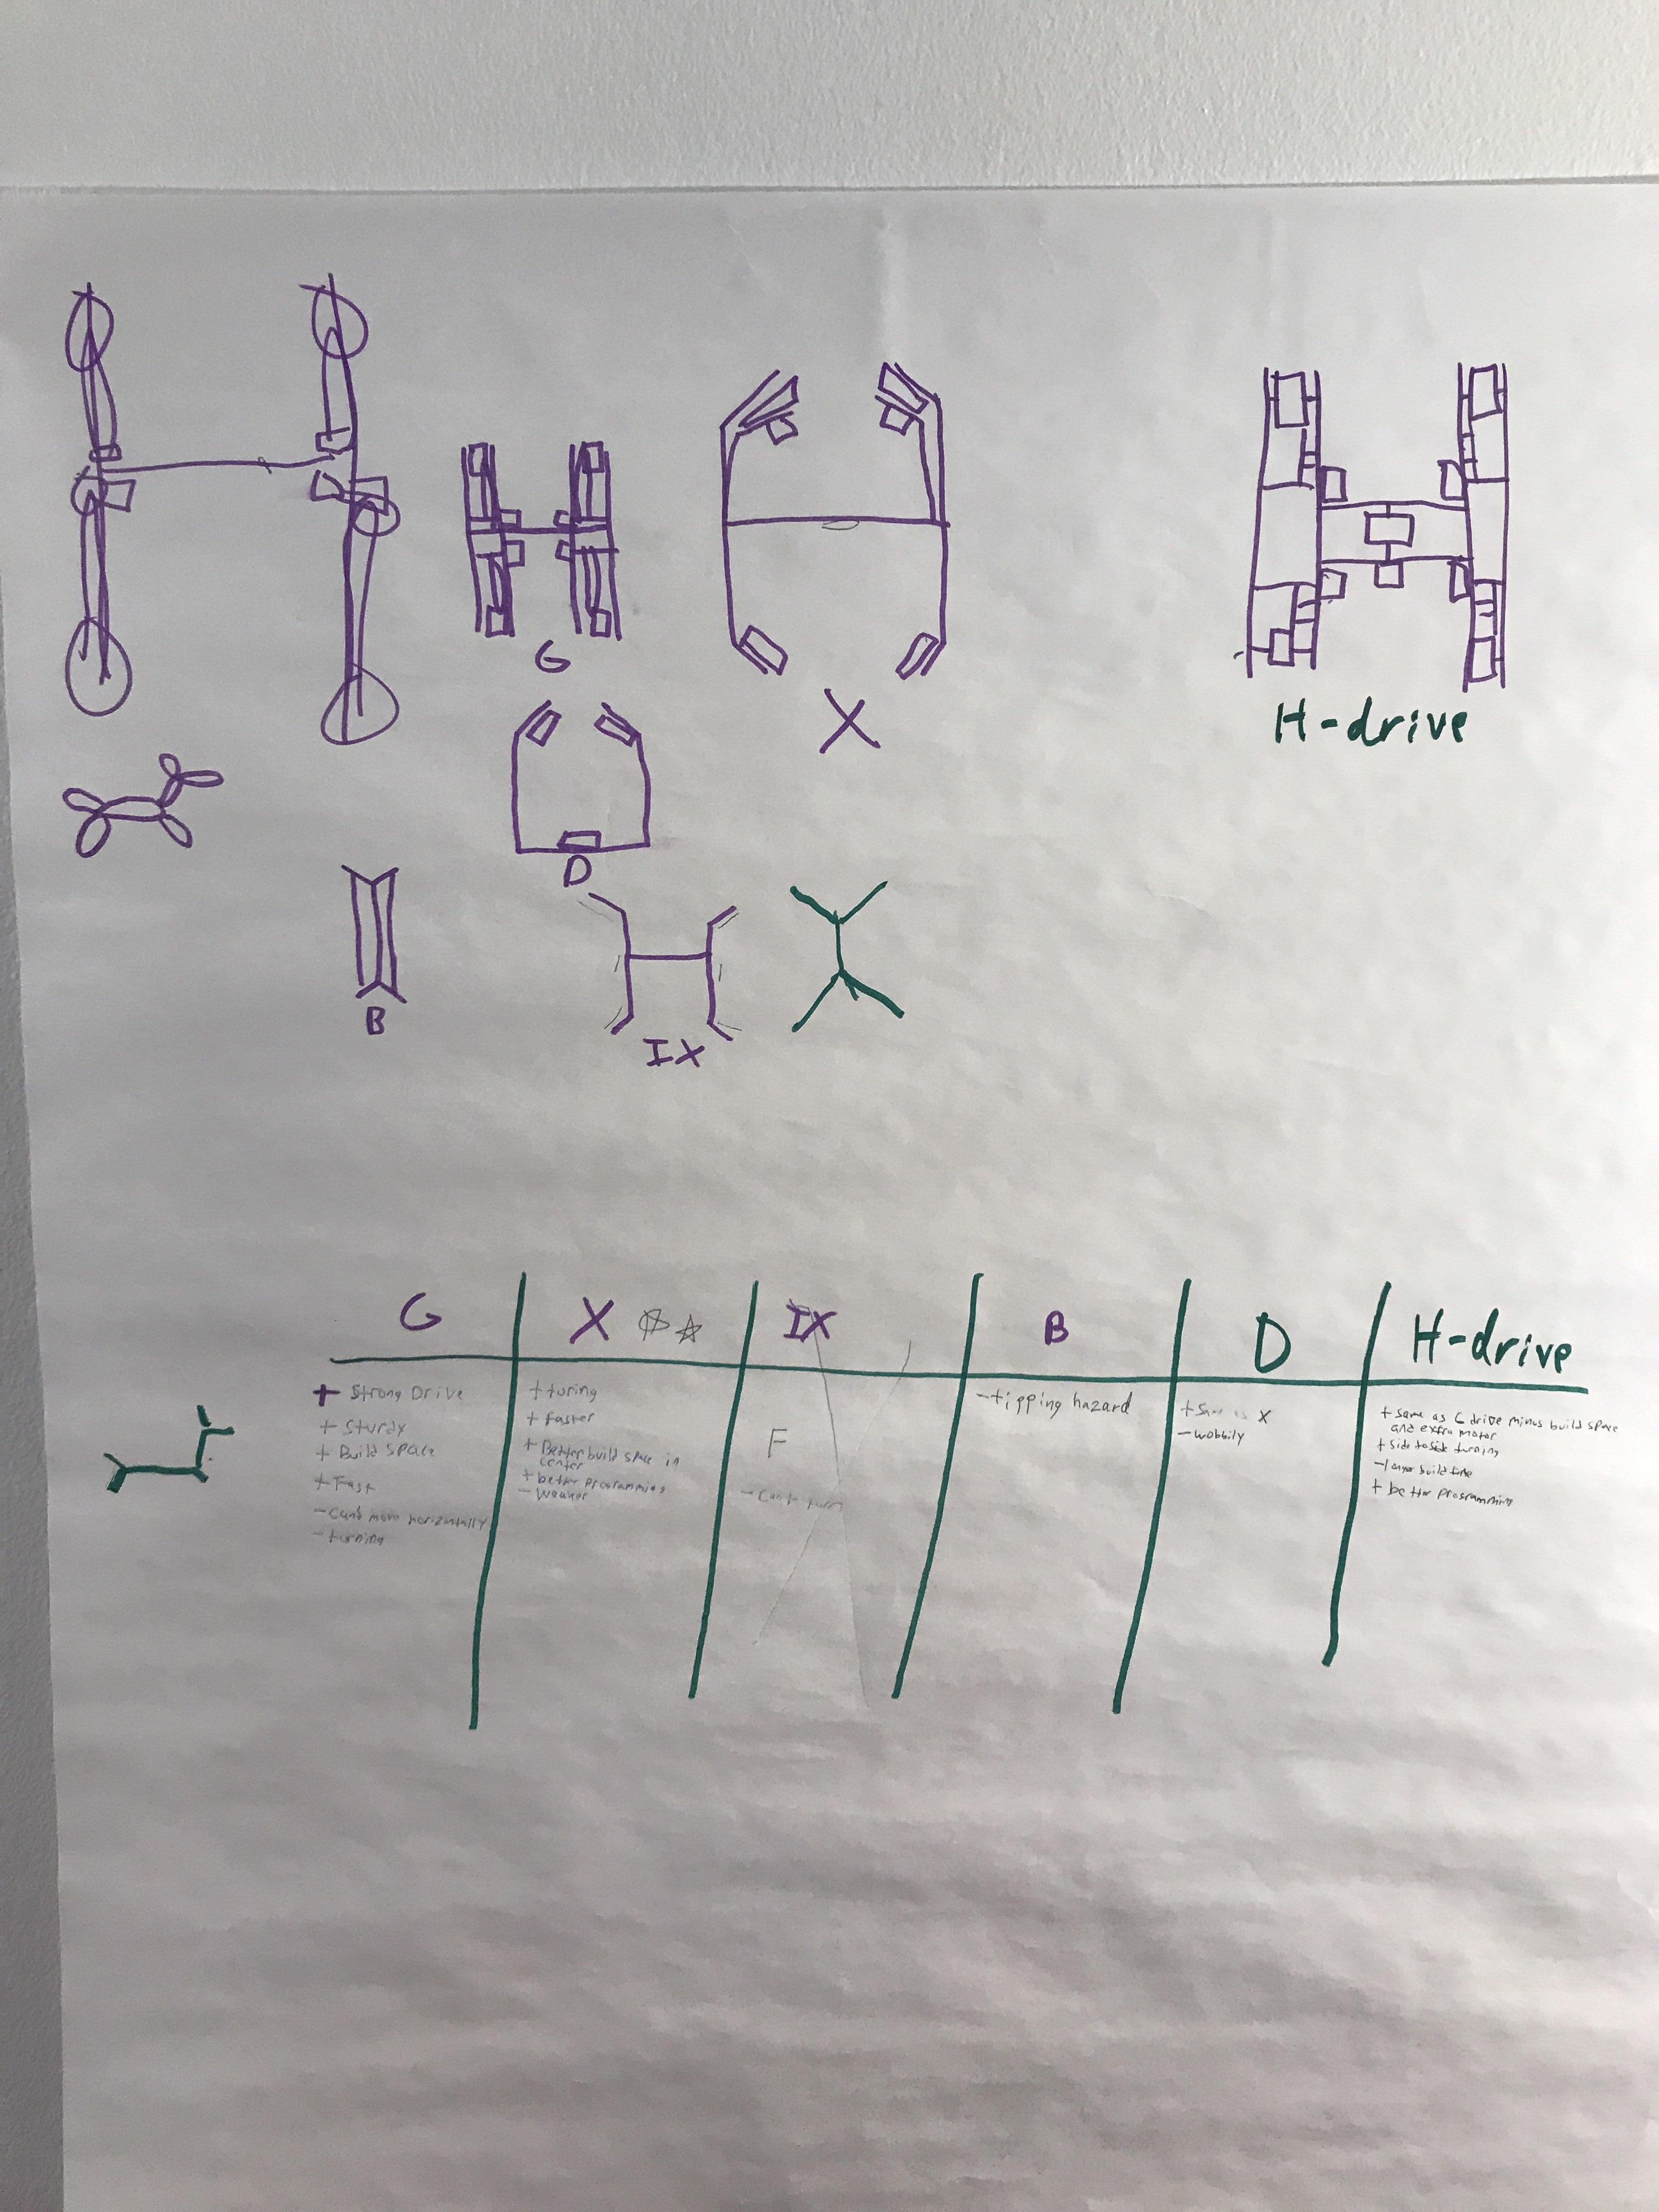 G
X
H-drive
D
B
IX
G
X
IX
B
D
H-drive
+ Strong Drive
+ Sturdy
+ Build space
+ Fast
- Can't move horizontally
- turning
+ turing
+ faster
+ Better build space in
center
+ better programming
- Weaker
F
- Can't turn
- tipping hazard
+ Same as X
- wobbily
+ Same as G drive minus build space
and extra motor
+ side to side turning
- longer build time
+ better programming